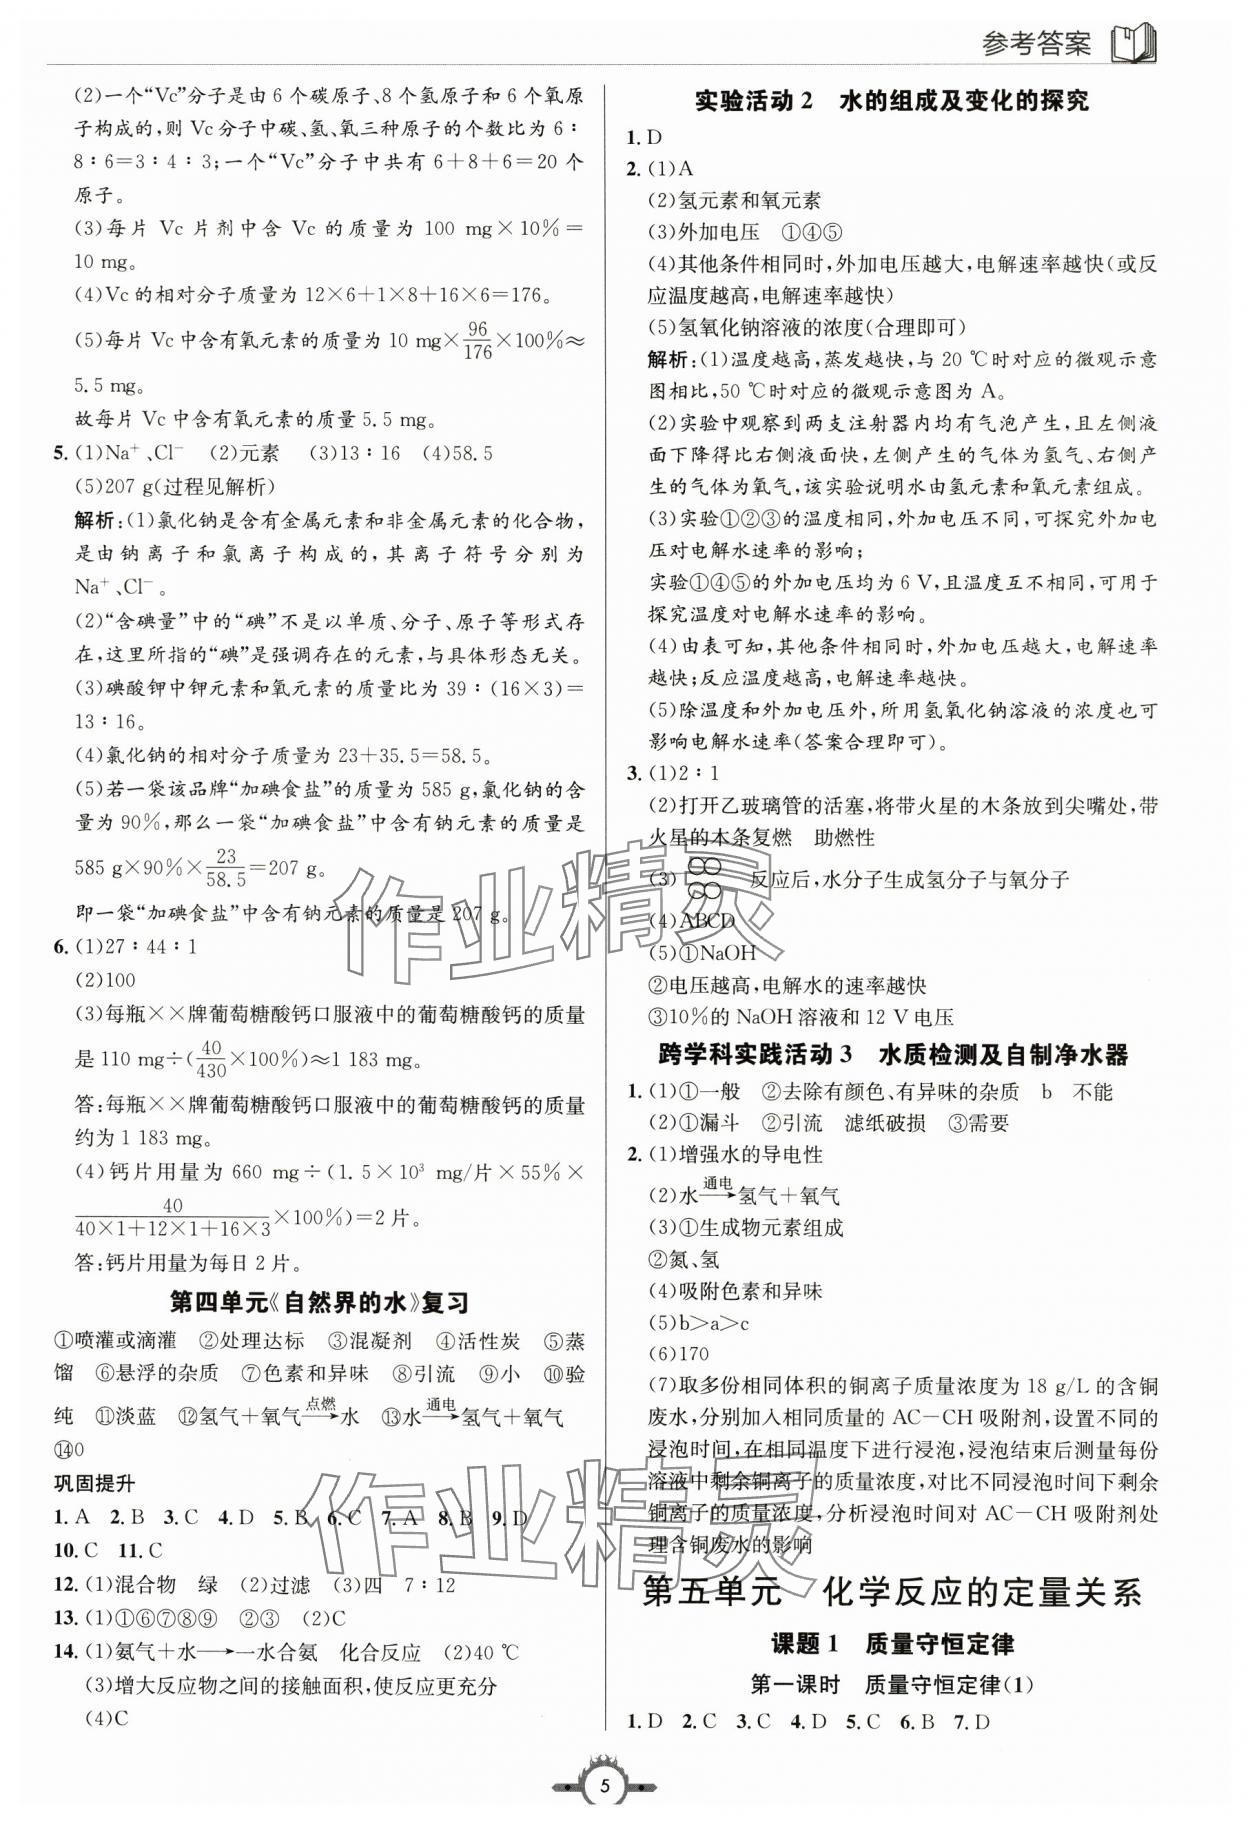 参考答案
(2)一个“Vc”分子是由 6 个碳原子、8 个氢原子和 6 个氧原
子构成的,则 Vc 分子中碳、氢、氧三种原子的个数比为 6∶
8∶6=3∶4∶3;一个“Vc”分子中共有 6+8+6=20 个
原子。
(3)每片 Vc 片剂中含 Vc 的质量为 100 mg×10%=
10 mg。
(4)Vc 的相对分子质量为 12×6+1×8+16×6=176。
(5)每片 Vc 中含有氧元素的质量为 10 mg×96/176×100%≈
5.5 mg。
故每片 Vc 中含有氧元素的质量 5.5 mg。
5. (1)Na⁺、Cl⁻ (2)元素 (3)13∶16 (4)58.5
(5)207 g(过程见解析)
解析:(1)氯化钠是含有金属元素和非金属元素的化合物,
是由钠离子和氯离子构成的,其离子符号分别为
Na⁺、Cl⁻。
(2)“含碘量”中的“碘”不是以单质、分子、原子等形式存
在,这里所指的“碘”是强调存在的元素,与具体形态无关。
(3)碘酸钾中钾元素和氧元素的质量比为 39∶(16×3)=
13∶16。
(4)氯化钠的相对分子质量为 23+35.5=58.5。
(5)若一袋该品牌“加碘食盐”的质量为 585 g,氯化钠的含
量为 90%,那么一袋“加碘食盐”中含有钠元素的质量是
585 g×90%×23/58.5=207 g。
即一袋“加碘食盐”中含有钠元素的质量是 207 g。
6. (1)27∶44∶1
(2)100
(3)每瓶××牌葡萄糖酸钙口服液中的葡萄糖酸钙的质量
是 110 mg÷(40/430×100%)≈1 183 mg。
答:每瓶××牌葡萄糖酸钙口服液中的葡萄糖酸钙的质量
约为 1 183 mg。
(4)钙片用量为 660 mg÷(1.5×10³ mg/片×55%×
40/(40×1+12×1+16×3)×100%)=2 片。
答:钙片用量为每日 2 片。
第四单元《自然界的水》复习
①喷灌或滴灌 ②处理达标 ③混凝剂 ④活性炭 ⑤蒸
馏 ⑥悬浮的杂质 ⑦色素和异味 ⑧引流 ⑨小 ⑩验
纯 ⑪淡蓝 ⑫氢气+氧气 点燃→ 水 ⑬水 通电→ 氢气+氧气
⑭0
巩固提升
1. A 2. B 3. C 4. D 5. B 6. C 7. A 8. B 9. D
10. C 11. C
12. (1)混合物 绿 (2)过滤 (3)四 7∶12
13. (1)①⑥⑦⑧⑨ ②③ (2)C
14. (1)氨气+水→一水合氨 化合反应 (2)40 ℃
(3)增大反应物之间的接触面积,使反应更充分
(4)C
实验活动 2 水的组成及变化的探究
1. D
2. (1)A
(2)氢元素和氧元素
(3)外加电压 ①④⑤
(4)其他条件相同时,外加电压越大,电解速率越快(或反
应温度越高,电解速率越快)
(5)氢氧化钠溶液的浓度(合理即可)
解析:(1)温度越高,蒸发越快,与 20 ℃时对应的微观示意
图相比,50 ℃时对应的微观示意图为 A。
(2)实验中观察到两支注射器内均有气泡产生,且左侧液
面下降得比右侧液面快,左侧产生的气体为氢气、右侧产
生的气体为氧气,该实验说明水由氢元素和氧元素组成。
(3)实验①②③的温度相同,外加电压不同,可探究外加电
压对电解水速率的影响;
实验①④⑤的外加电压均为 6 V,且温度互不相同,可用于
探究温度对电解水速率的影响。
(4)由表可知,其他条件相同时,外加电压越大,电解速率
越快;反应温度越高,电解速率越快。
(5)除温度和外加电压外,所用氢氧化钠溶液的浓度也可
影响电解水速率(答案合理即可)。
3. (1)2∶1
(2)打开乙玻璃管的活塞,将带火星的木条放到尖嘴处,带
火星的木条复燃 助燃性
(3) 反应后,水分子生成氢分子与氧分子
(4)ABCD
(5)①NaOH
②电压越高,电解水的速率越快
③10%的 NaOH 溶液和 12 V 电压
跨学科实践活动 3 水质检测及自制净水器
1. (1)①一般 ②去除有颜色、有异味的杂质 b 不能
(2)①漏斗 ②引流 滤纸破损 ③需要
2. (1)增强水的导电性
(2)水 通电→ 氢气+氧气
(3)①生成物元素组成
②氮、氢
(4)吸附色素和异味
(5)b>a>c
(6)170
(7)取多份相同体积的铜离子质量浓度为 18 g/L 的含铜
废水,分别加入相同质量的 AC-CH 吸附剂,设置不同的
浸泡时间,在相同温度下进行浸泡,浸泡结束后测量每份
溶液中剩余铜离子的质量浓度,对比不同浸泡时间下剩余
铜离子的质量浓度,分析浸泡时间对 AC-CH 吸附剂处
理含铜废水的影响
第五单元 化学反应的定量关系
课题 1 质量守恒定律
第一课时 质量守恒定律(1)
1. D 2. C 3. C 4. D 5. C 6. B 7. D
5
作业精灵
作业精灵